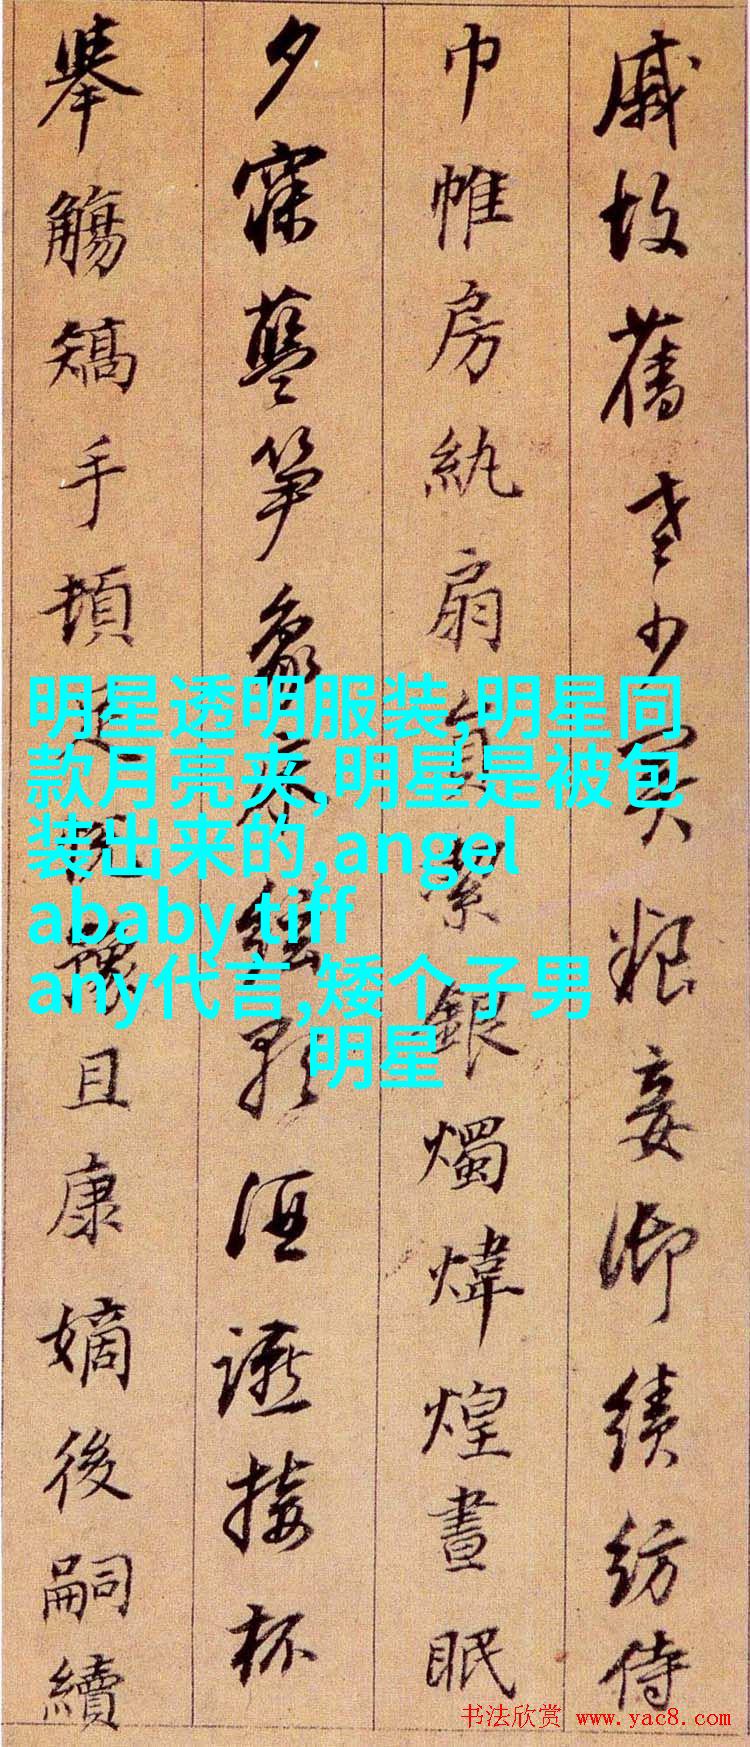 戚故舊老少異粮妾御績紡侍
巾帷房紈扇員絜銀燭煒煌晝眠
夕寐藍笋象床絃歌酒讌接杯
舉觴矯手頓足悅豫且康嫡後嗣續
明星透明服装,明星同
款月亮夹,明星是被包
装出来的,angel
ababy tiff
any代言,矮个子男
明星
书法欣赏 www.yac8.com